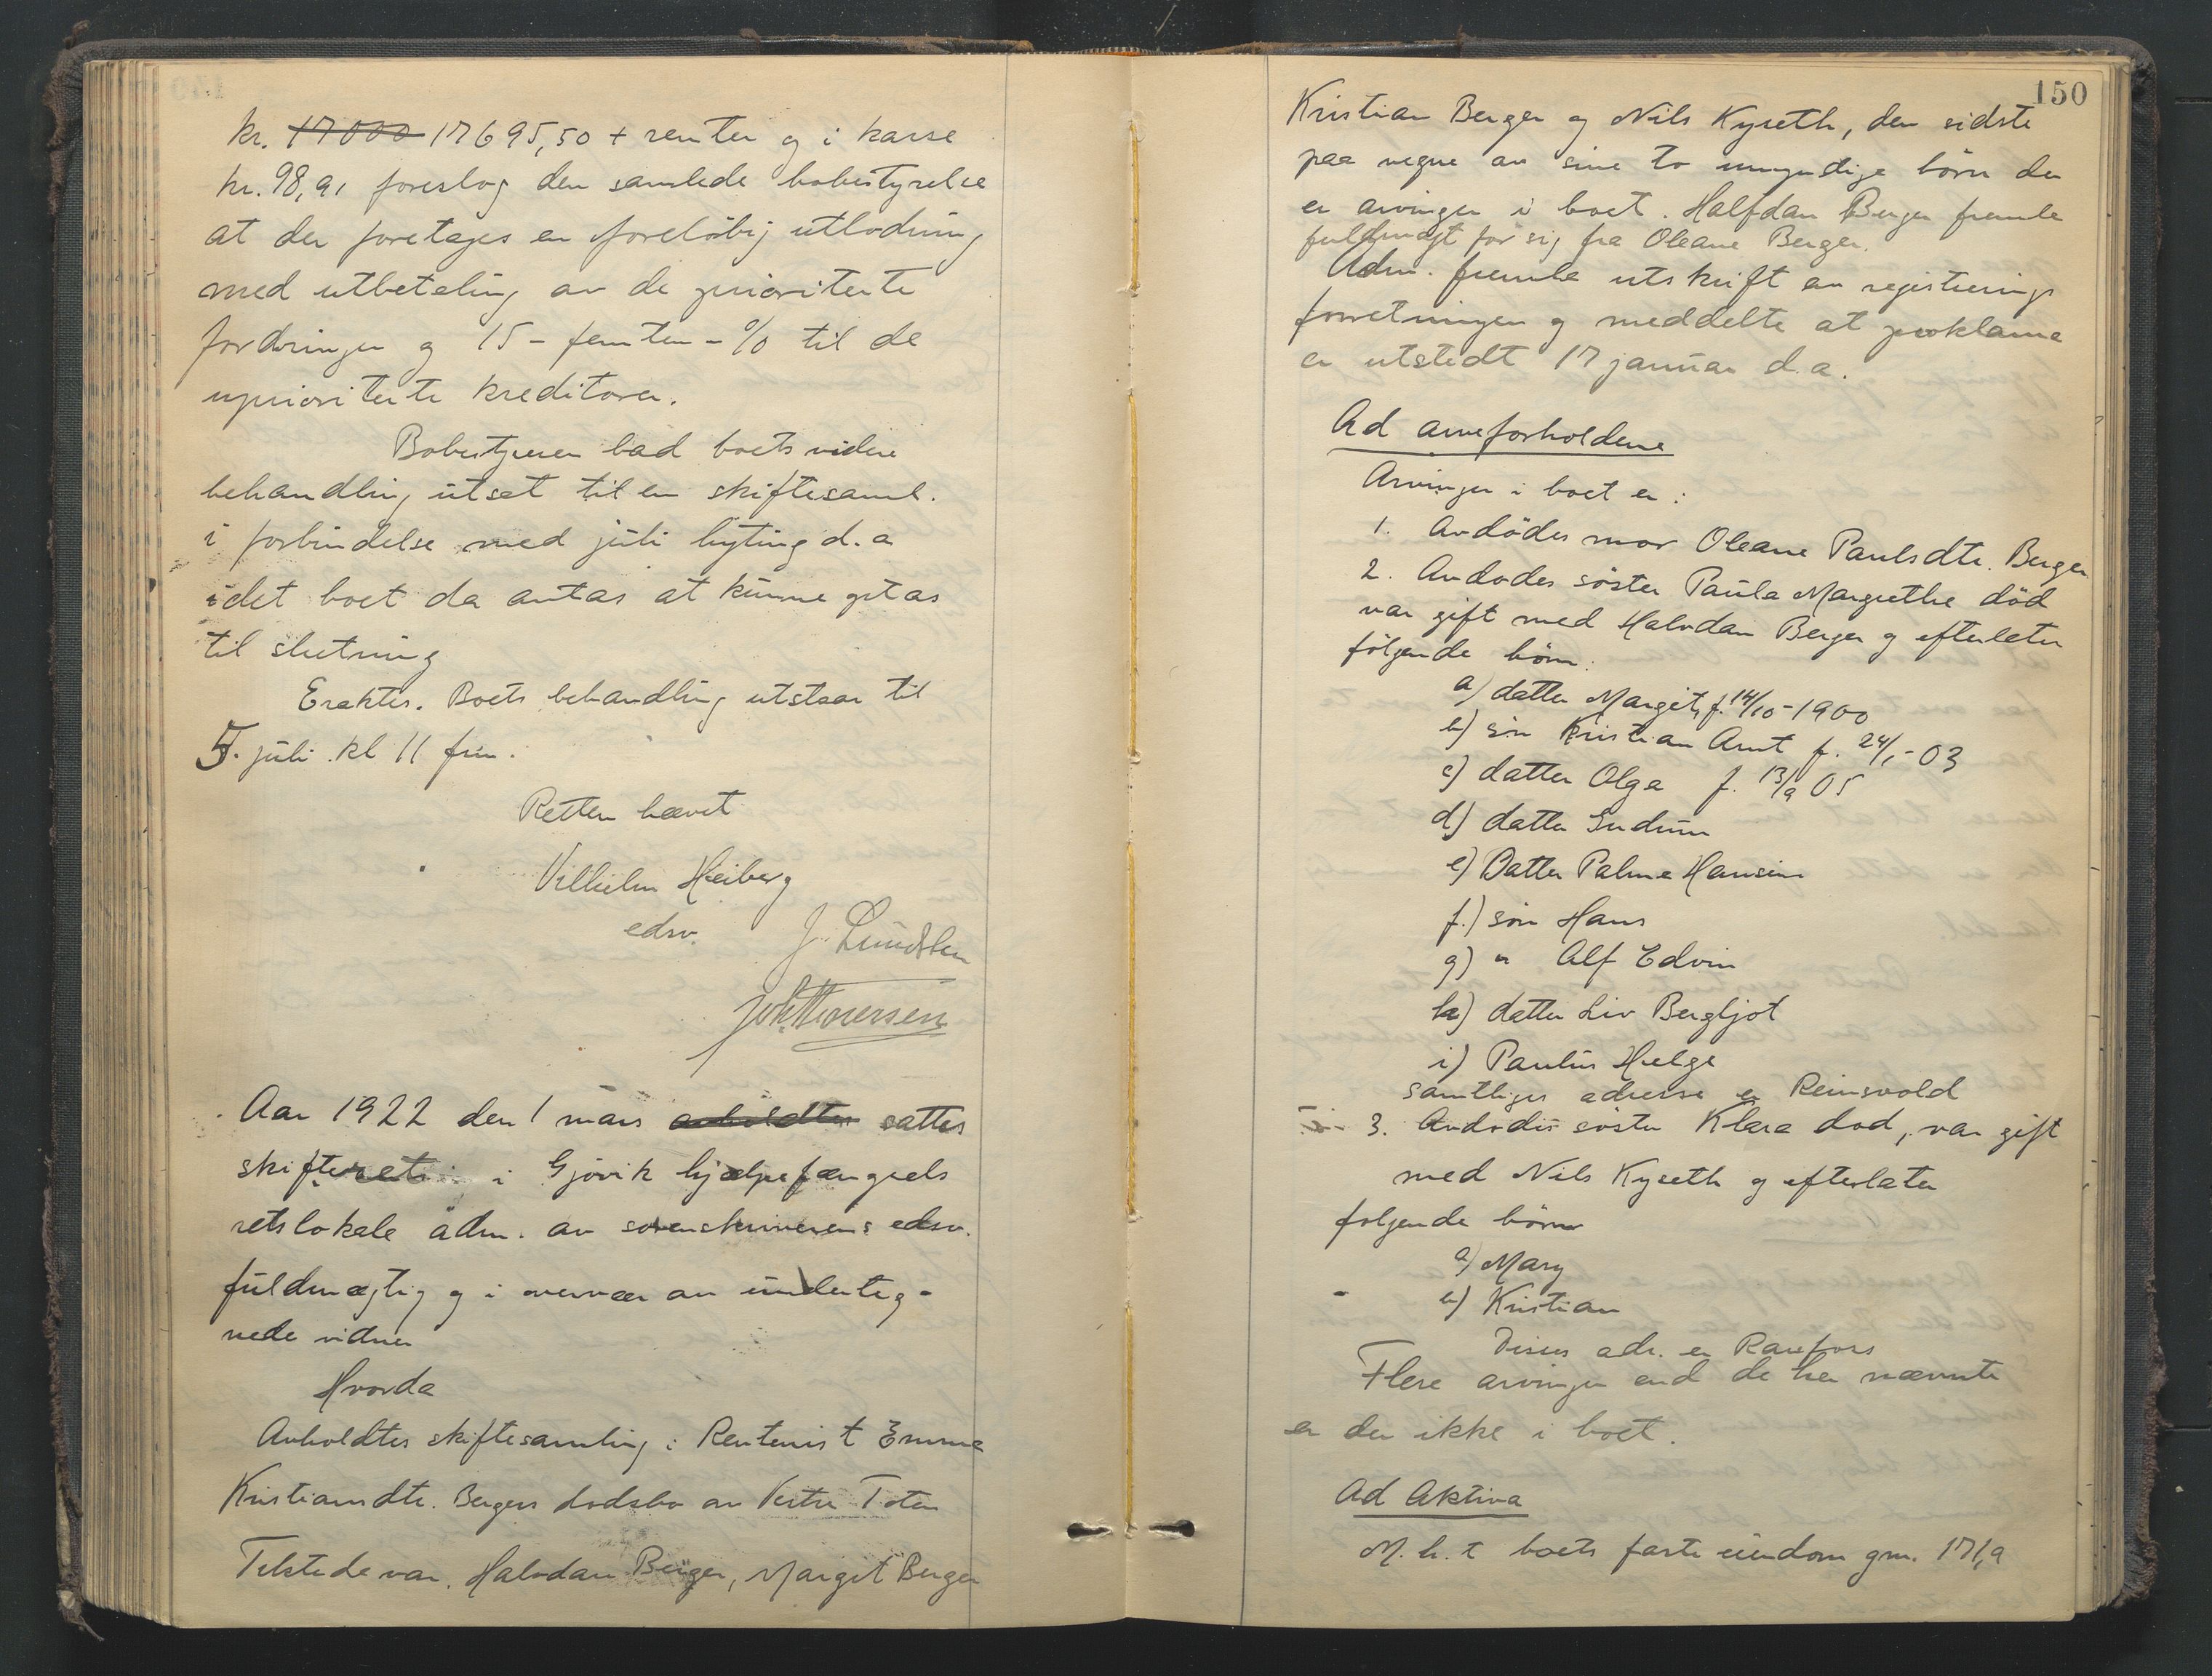 kr. 17000 17695,50 + renter og i kasse
kr. 98,91 foreslog den samlede bobestyrelse
at der foretages en foreløbig utlodning
med utbetaling av de prioriterte
fordringer og 15 - femten - % til de
upriorriterte kreditorer.
Bobestyreren bad boets videre
behandling utsat til en skiftesaml.
i forbindelse med juli byting d. a
idet boet da antas at kunne gtas
til slutning
Eragtes. Boets behandling utstaar til
5. juli kl 11 fm.
Retten hævet
Vilhelm Heiberg
edsv.
J. Lundsten
Aar 1922 den 1 mars avholdtes sattes
skifteret i Gjøvik hjælpefængsels
retslokale adm. av sorenskriverens edsv.
fuldmægtig og i overvær av underteg-
nede vidner
Hvorda
Avholdtes skiftesamling i Rentenist Emma
Kristiansdtr. Bergers dødsbo av Vestre Toten
Tilstede var. Halvdan Berger, Margit Berger
150
Kristian Berger og Nils Kyseth, den sidste
paa vegne av sine to umyndige børn der
er arvinger i boet. Halfdan Berger fremla
fuldmagt for sig fra Oleane Berger.
Adm. fremla utskrift av registrerings
forretningen og meddelte at proklama
er utstedt 17 januar d. a.
Ad arveforholdene
Arvinger i boet er:
1. Avdødes mor Oleane Paulsdtr. Berger
2. Avdødes søster Paula Margrethe død
var gift med Halvdan Berger og efterlater
følgende børn:
a) datter Margit, f. 14/10-1900
b) søn Kristian Arnt f. 24/1-03
c) datter Olga f. 13/9 05
d) datter Gudrun
e) Datter Palma Hansine
f.) søn Hans
g) " Alf Edvin
h) datter Liv Bergljot
i) Paulus Helge
samtliges adresse er Reinsvold
3. Avdødes søster Klara død, var gift
med Nils Kyseth og efterlater
følgende børn
a) Mary
b) Kristian
Disses adr. er Raufoss
Flere arvinger end de her nævnte
er der ikke i boet.
Ad Aktiva
M. h. t boets faste eiendom gnr. 171,9